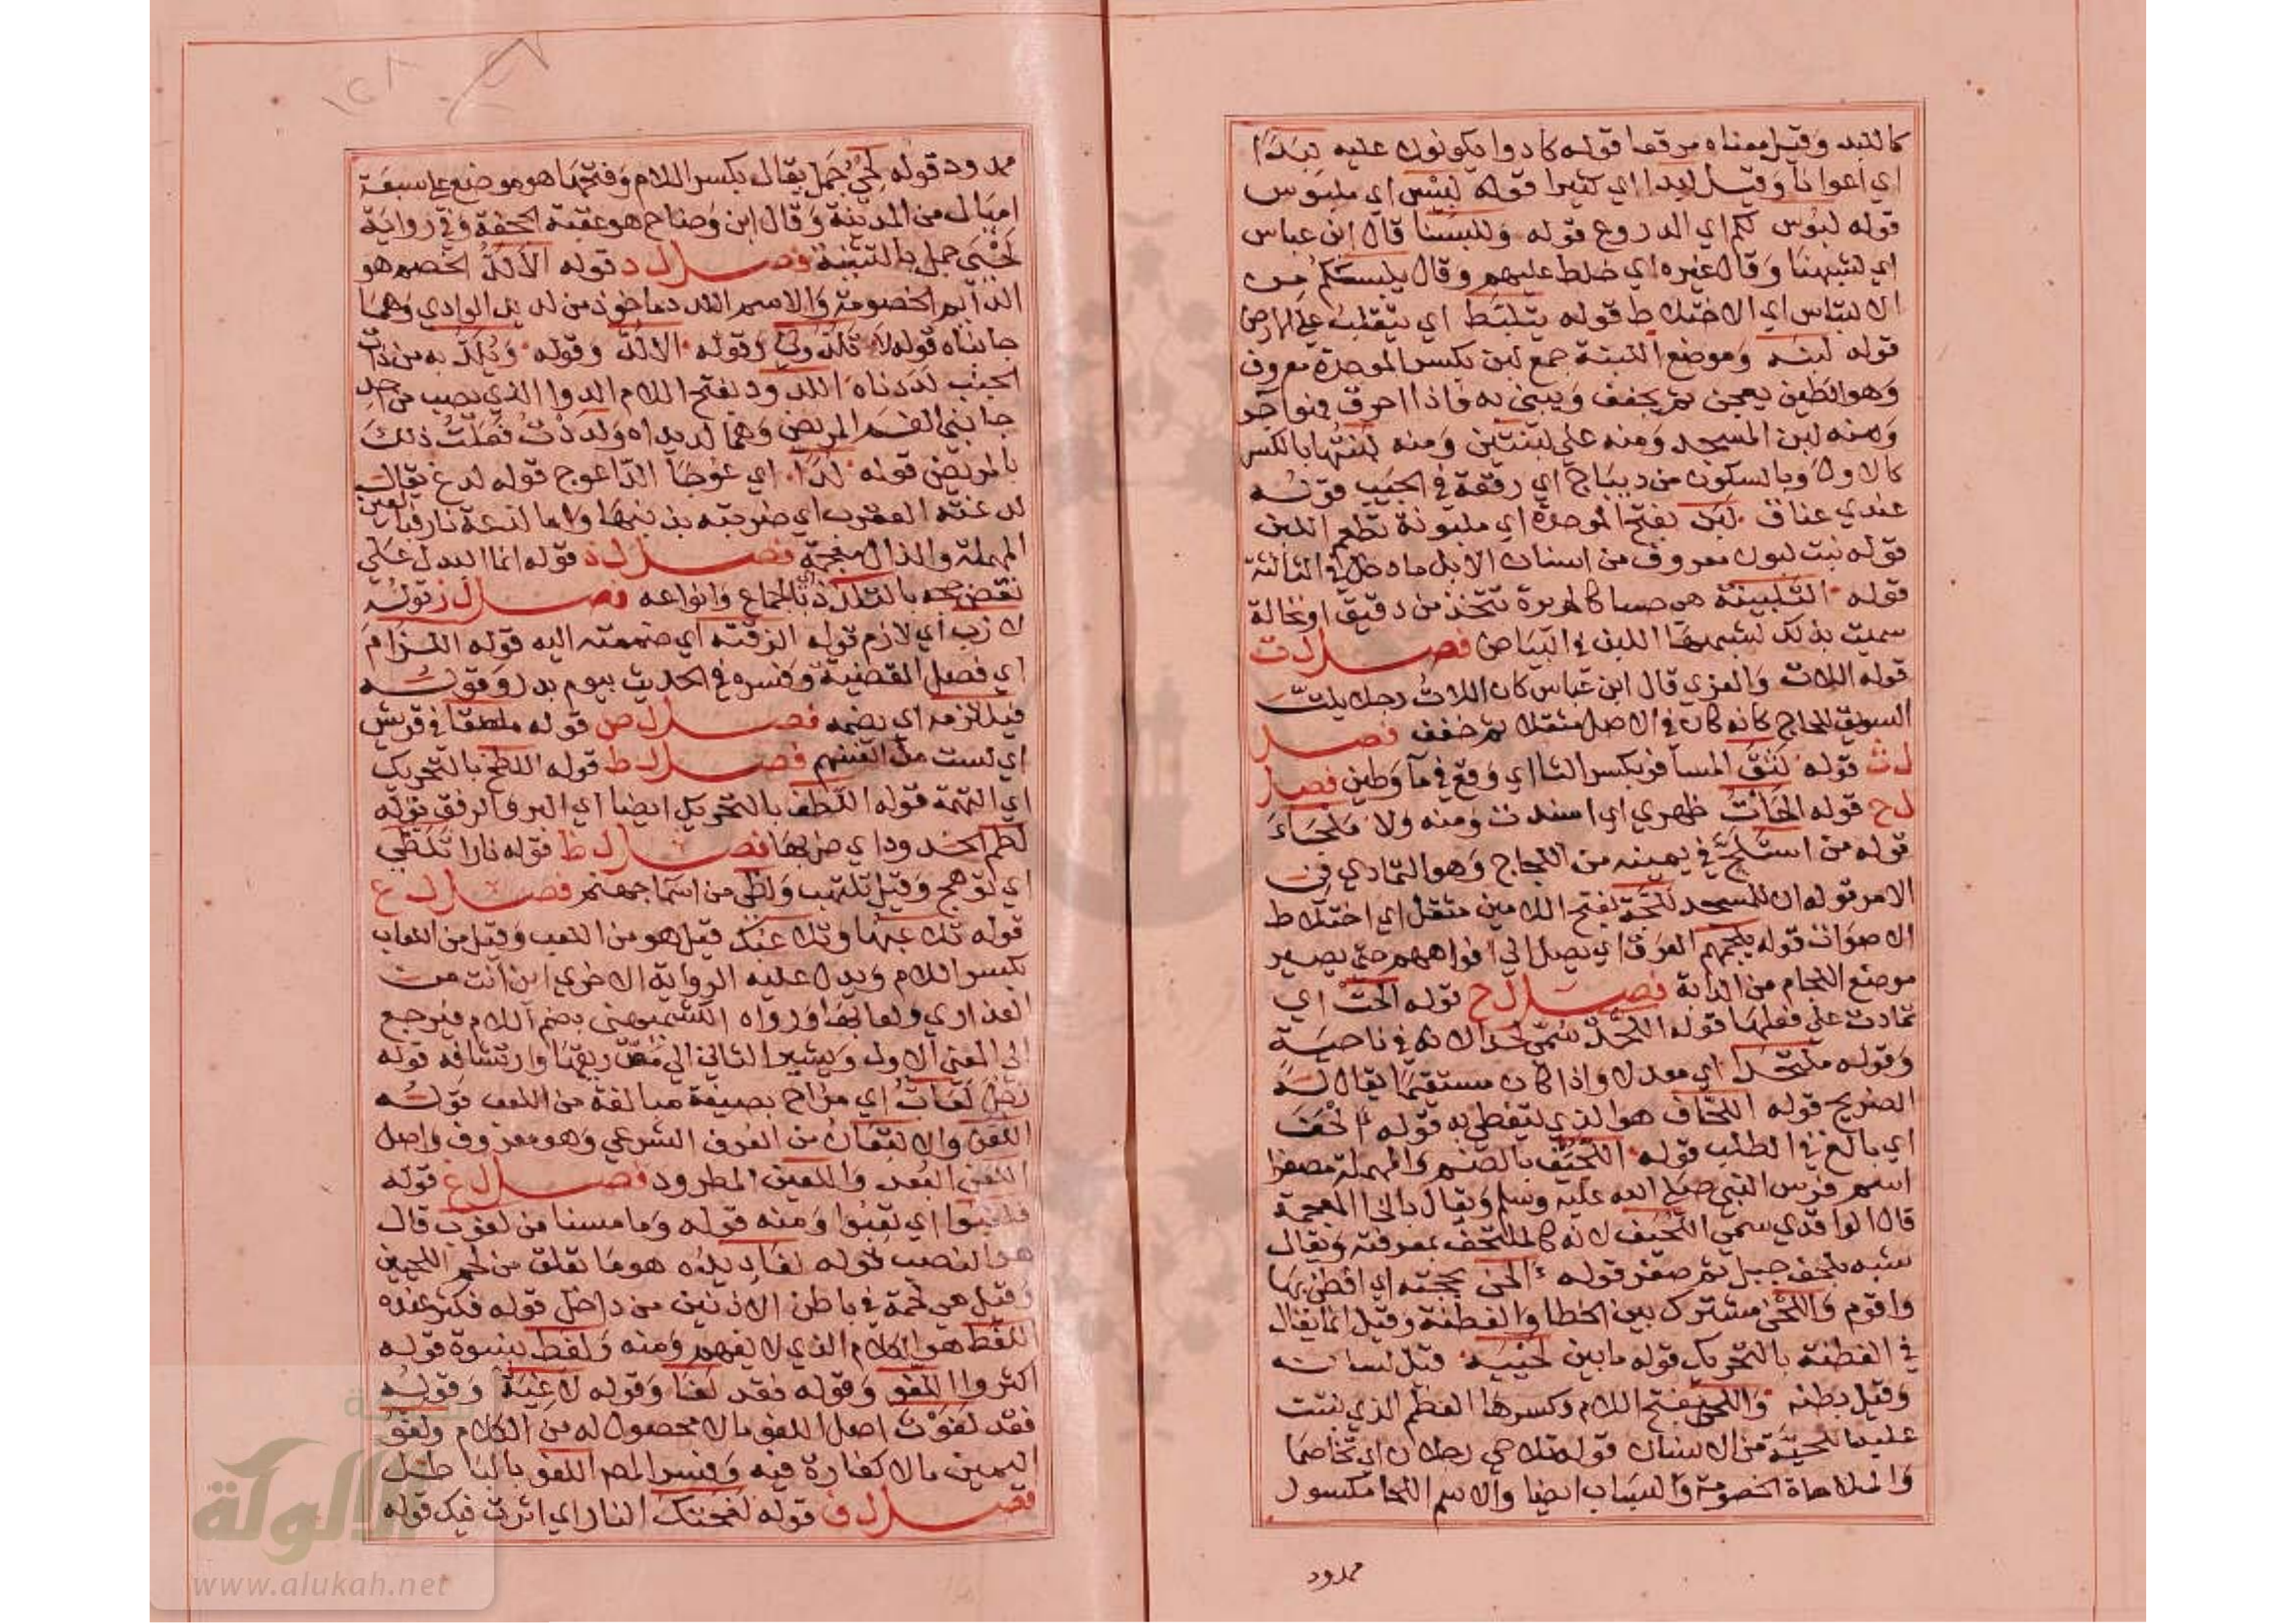 كاللبد وقيل معناه مرقعا قوله كادوا يكونون عليه لبدا
اي اعوانا وقيل لبدا اي كثيرا قوله لبس اي ملبوس
قوله لبوس لكم اي الدروع قوله وللبسنا قال ابن عباس
اي لشبهنا وقال غيره اي خلط عليهم وقال يلبسكم من
الالتباس اي الاختلاط قوله يتلبط اي يتقلب على الارض
قوله لبنه وموضع اللبنة جمع لبن بكسر الموحدة معروف
وهو الطين يعجن ثم يجفف ويبنى به فاذا احرق فهو آجر
ومنه لبن المسجد ومنه على لبنتين ومنه لبنتها بالكسر
كالاول وبالسكون من ديباج اي رقعة في الجيب قوله
عندي عناق لبن بفتح الموحدة اي ملبونة تطعم اللبن
قوله بنت لبون معروف من اسنان الابل ما دخل في الثالثة
قوله التلبينة هي حسا كالحريرة تتخذ من دقيق او نخالة
سميت بذلك لشبهها اللبن في البياض فصل ل ت
قوله اللات والعزي قال ابن عباس كان اللات رجلا يلت
السويق للحاج كانه كان في الاصل مثقلا ثم خفف فصل
ل ث قوله لثق المسافر بكسر الثا اي وقع في مآ وطين فصل
ل ج قوله الجأت ظهري اي اسندت ومنه ولا ملجاء
قوله من استلج في يمينه من اللجاج وهو التمادي في
الامر قوله ان للمسجد للجة بفتح اللامين مثقل اي اختلاط
الاصوات قوله يلجمهم العرق اي يصل الى افواههم حتى يصير
موضع اللجام من الدابة فصل ل ح قوله الحت اي
تمادت على فعلها قوله اللحد سمي لحدا لانه في ناحية
وقوله ملتحدا اي معدلا واذا كان مستقيما يقال له
الضريح قوله اللحاف هو الذي يتغطى به قوله الحف
اي بالغ في الطلب قوله اللحيف بالضم والمهملة مصغرا
اسم فرس النبي صلى الله عليه وسلم ويقال بالخا المعجمة
قال الواقدي سمي اللحيف لانه كالملتحف بمعرفته ويقال
شبه بلحف جبل ثم صغر قوله الحن بحجته اي افطن بها
واقوم واللحن مشترك بين الخطا والفطنة وقيل انما يقال
في الفطنة بالتحريك قوله ما بين لحييه قيل لسانه
وقيل بطنه واللحي بفتح اللام وكسرها العظم الذي نبتت
عليه اللحية من الانسان قوله تلاحي رجلان اي تخاصما
والملاحاة الخصومة والسباب ايضا والاسم اللحا مكسور
ممدود
ممدود قوله لحي جمل يقال بكسر اللام وفتحها هو موضع على سبعة
اميال من المدينة وقال ابن وضاح هو عقبة الجحفة وفي رواية
لحيي جمل بالتثنية فصل ل د قوله الالد الخصم هو
الدايم الخصومة والاسم اللدد ماخوذ من لديدي الوادي وهما
جانباه قوله لا تلدوني وقوله الا لد وقوله ويلد به من ذات
الجنب لددناه اللدود بفتح اللام الدوا الذي يصب من احد
جانبي الفم المريض وهما لديداه ولددت فعلت ذلك
بالمريض قوله لدا اي عوجا الدا عوج قوله لدغ يقال
لدغته العقرب اي ضربته بذنبها واما لذعة نار فبالعين
المهملة والذال معجمة فصل ل ذ قوله انما البدل على
نقض حجه بالتلذذ اي بالجماع وانواعه فصل ل ز قوله
لازب اي لازم قوله الزقته اي ضممته اليه قوله اللزام
اي فصل القضية وفسره في الحديث بيوم بدر وقوله
فيلتزمه اي يضمه فصل ل ص قوله ملصقا في قريش
اي لست من انفسهم فصل ل ط قوله اللطخ بالتحريك
اي التهمة قوله اللطف بالتحريك ايضا اي البر والرفق قوله
لطم الخدود اي ضربها فصل ل ظ قوله نارا تلظى
اي توهج وقيل تلتهب ولظى من اسما جهنم فصل ل ع
قوله تلاعبها وتلاعبك قيل هو من اللعب وقيل من اللعاب
بكسر اللام ويدل عليه الرواية الاخرى اين انت من
العذارى ولعابها ورواه الكشميهني بضم اللام فيرجع
الى المعنى الاول ويشير الثاني الى مص ريقها وارتشافه قوله
رجل لعاب اي مزاح بصيغة مبالغة من اللعب قوله
اللعن والالتعان من العرف الشرعي وهو معروف واصل
اللعن البعد واللعين المطرود فصل ل غ قوله
فلغبوا اي تعبوا ومنه قوله وما مسنا من لغوب قال
هو النصب قوله لغاديده هو ما تعلق من لحم اللحيين
وقيل هي لحمة في باطن الاذنين من داخل قوله فكثر عنده
اللغط هو الكلام الذي لا يفهم ومنه ولغط نسوة قوله
اكثروا اللغو وقوله فقد لغا وقوله لاغية وقوله
فقد لغوت اصل اللغو ما لا محصول له من الكلام ولغو
اليمين ما لا كفارة فيه وفسر المص اللغو بالباطل
فصل ل ف قوله لفحتك النار اي اثرت فيك قوله
الألوكة
www.alukah.net